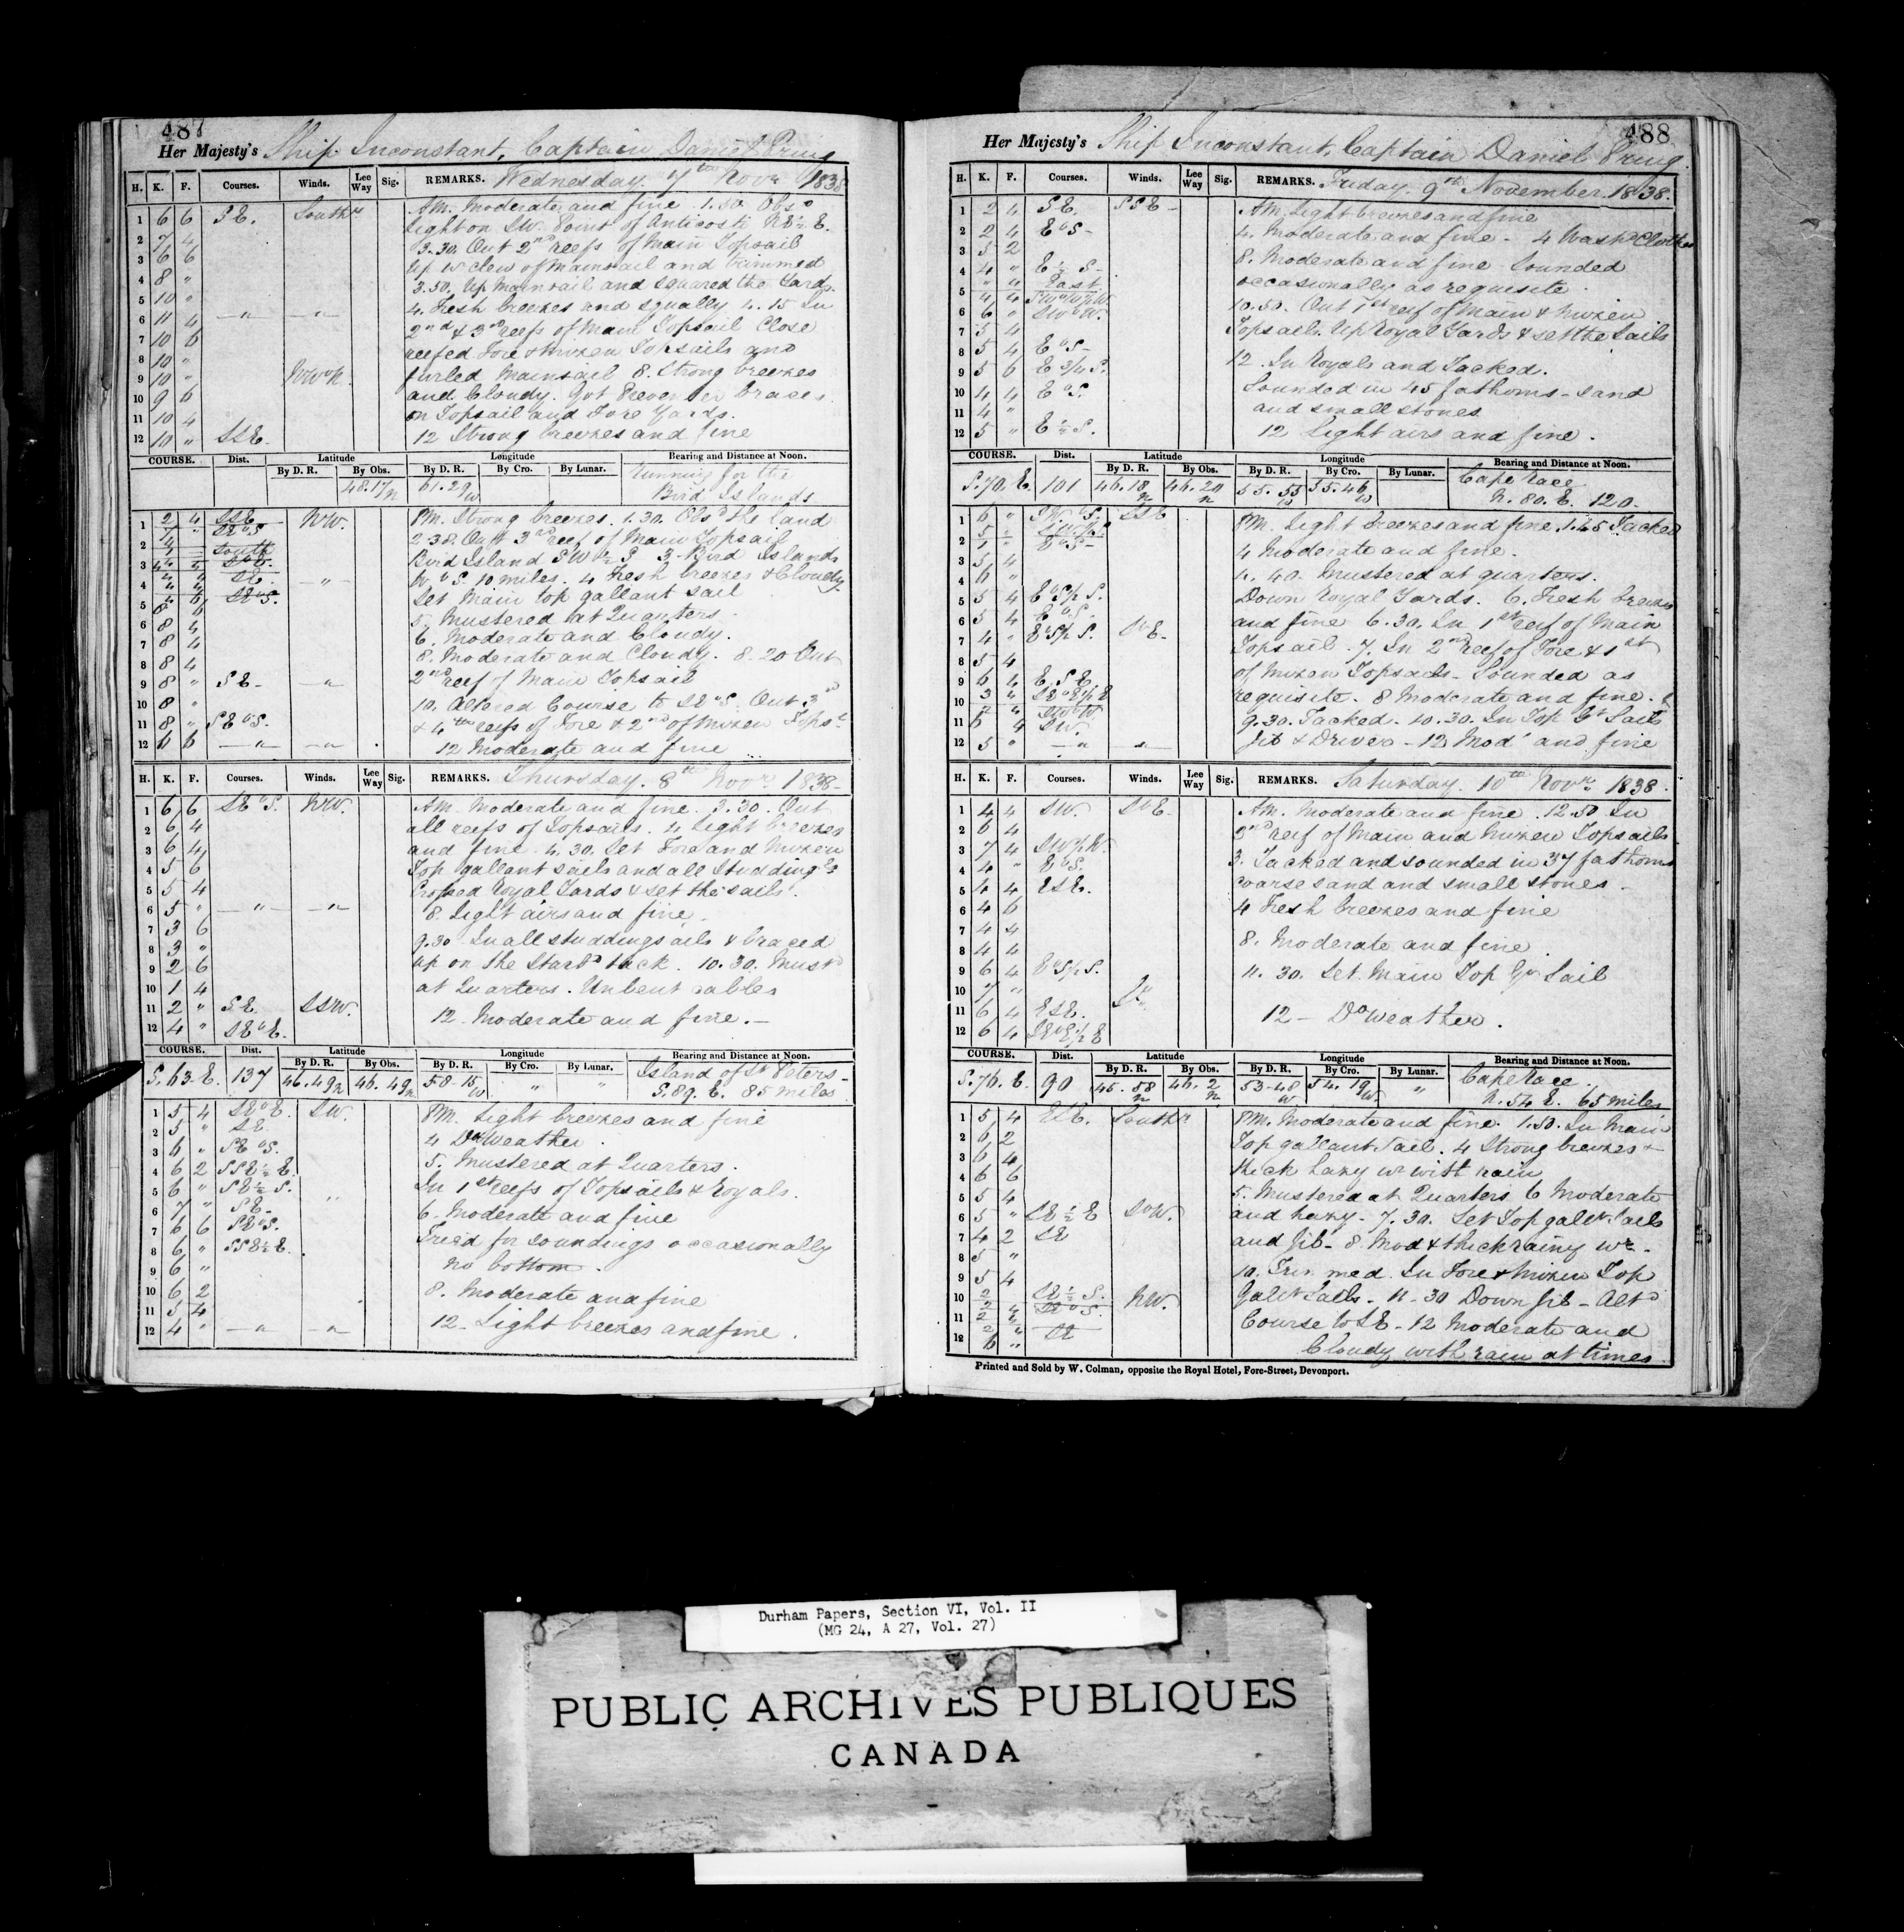 487
Her Majesty's Ship Inconstant, Captain Daniel Pring
H. K. F. Courses. Winds. Lee Way Sig. REMARKS. Wednesday. 7th Novr 1838
AM. Moderate and fine 1.50 Obsd
Light on SW. Point of Anticosti NE½E.
3.30. Out 2nd reefs of Main Topsail
Up Wr clew of Mainsail and trimmed
3.50. Up Mainsail and squared the Yards
4. Fresh breezes and squally 4.15 In
2nd & 3rd reefs of Main Topsail Close
reefed Fore & Mizen Topsails and
furled Mainsail 8. Strong breezes
and Cloudy. Got Preventer braces
on Topsail and Fore Yards.
12 Strong breezes and fine
1 6 6 SE. Southr
2 7 4
3 6 6
4 8 "
5 10 "
6 11 4 —"— —"—
7 10 6
8 10 "
9 10 " NWbN.
10 9 6
11 10 4
12 10 " SSE.
COURSE. Dist. Latitude Longitude Bearing and Distance at Noon.
By D. R. By Obs. By D. R. By Cro. By Lunar.
48.17 N 61.29 W Running for the
Bird Islands
PM. Strong breezes. 1.30. Obsd the land
2.38. Out 3rd reef of Main Topsail
Bird Island SW½S 3. Bird Islands
WbS. 10 miles. 4 Fresh breezes & Cloudy
Set Main top gallant sail
5. Mustered at Quarters
6. Moderate and Cloudy.
8. Moderate and Cloudy. 8.20 Out
2nd reef of Main Topsail
10. Altered Course to SEbS. Out 3rd
& 4th reefs of Fore & 2nd of Mizen Topsl
12 Moderate and fine
1 2 4 SSE NW.
6 8 4
7 8 4
8 8 4
9 8 " SE — —"—
10 8 "
11 8 " SEbS.
12 6 6 —"— —"—
H. K. F. Courses. Winds. Lee Way Sig. REMARKS. Thursday. 8th Novr 1838
AM. Moderate and fine. 3.30. Out
all reefs of Topsails. 4 Light breezes
and fine. 4.30. Set Fore and Mizen
Top gallant sails and all Studdings
Crossed Royal Yards & set the sails.
8. Light airs and fine.
9.30 In all studdingsails & braced
up on the Starbd tack. 10.30. Mustd
at Quarters. Unbent cables
12. Moderate and fine.—
1 6 6 SEbS. NW.
2 6 4
3 6 4
4 5 6
5 5 4
6 5 " —"— —"—
7 3 6
8 3 "
9 2 6
10 1 4
11 2 " SE SSW.
12 4 " SEbE.
COURSE. Dist. Latitude Longitude Bearing and Distance at Noon.
By D. R. By Obs. By D. R. By Cro. By Lunar.
S.63.E. 137 46.49 N 46.49 N 58.15 W " " Island of St Peters
S.89.E. 85 miles
PM. Light breezes and fine
4 Do Weather.
5. Mustered at Quarters.
In 1st reefs of Topsails & Royals.
6. Moderate and fine
Tried for soundings occasionally
No bottom.
8. Moderate and fine
12. Light breezes and fine.
1 5 4 SEbE. SW.
2 5 " SE.
3 6 " SEbS.
4 6 2 SSE½E.
5 6 " SE½S.
6 7 " SE
7 6 6 SEbS.
8 6 " SSE½E.
9 6 "
10 6 2
11 5 4
12 4 " —"— "
488
Her Majesty's Ship Inconstant, Captain Daniel Pring.
H. K. F. Courses. Winds. Lee Way Sig. REMARKS. Friday. 9th November 1838.
AM. Light breezes and fine
4. Moderate and fine. 4 Washd Clothes
8. Moderate and fine Sounded
occasionally as requisite.
10.50. Out 1st reef of Main & Mizen
Topsails. Up Royal Yards & set the Sails
12. In Royals and Tacked.
Sounded in 45 fathoms. Sand
and small stones
12 Light airs and fine.
1 2 4 SE. SSE
2 2 4 EbS
3 5 2
4 4 " E½S
7 5 4
8 5 4 EbS
9 5 6 E¾S.
10 4 4 EbS.
11 4 "
12 5 " E½S.
COURSE. Dist. Latitude Longitude Bearing and Distance at Noon.
By D. R. By Obs. By D. R. By Cro. By Lunar.
S.70.E. 101 46.18 N 46.20 N 55.55 W 55.46 W Cape Race
N.80.E. 120.
PM. Light breezes and fine. 1.45 Tacked
4 Moderate and fine.
4.40. Mustered at quarters.
Down Royal Yards. 6. Fresh breezes
and fine 6.30. In 1st reef of Main
Topsail. 7. In 2nd reef of Fore & 1st
of Mizen Topsails. Sounded as
requisite. 8 Moderate and fine.
9.30. Tacked. 10.30. In Top Gt Sails
Jib & Driver — 12 Modt and fine
3 5 4
4 6 "
5 5 4
6 5 4 EbS
8 5 4
9 6 4 ESE
11 6 4 SW.
12 5 " —"— —"—
H. K. F. Courses. Winds. Lee Way Sig. REMARKS. Saturday. 10th Novr 1838.
AM. Moderate and fine. 12.50 In
2nd reef of Main and Mizen Topsails
3. Tacked and sounded in 37 fathoms
coarse sand and small stones.
4 Fresh breezes and fine
8. Moderate and fine.
11.30. Set Main Top Gt Sail
12 — Do Weather.
1 4 4 SW. SbE
2 6 4
3 7 4 SW½W.
4 4 " EbS.
5 4 4 ESE.
6 4 6
7 4 4
8 4 4
9 6 4 EbS½S.
10 7 "
11 6 4 ESE.
12 6 4 SEbE½E
COURSE. Dist. Latitude Longitude Bearing and Distance at Noon.
By D. R. By Obs. By D. R. By Cro. By Lunar.
S.76.E. 90 45.58 N 46.2 N 53.48 W 54.19 W " Cape Race.
N.54E. 65 miles
PM. Moderate and fine. 1.50. In Main
Top gallant Sail. 4 Strong breezes &
thick hazy wr with rain
5. Mustered at Quarters 6 Moderate
and hazy. 7.30. Set Top gallt Sails
and Jib. 8. Mod & thick rainy wr.
10. Trimmed. In Fore & Mizen Top
Gallt Sails. 11.30 Down Jib — Altd
Course to SE. 12 Moderate and
Cloudy with rain at times.
1 5 4 ESE. Southr
2 6 2
3 6 4
4 6 6
5 5 4
6 5 " SE½E SbW.
7 4 2 SE
8 5 "
9 5 4
12 6 "
Printed and Sold by W. Colman, opposite the Royal Hotel, Fore-Street, Devonport.
Durham Papers, Section VI, Vol. II
(MG 24, A 27, Vol. 27)
PUBLIC ARCHIVES PUBLIQUES
CANADA